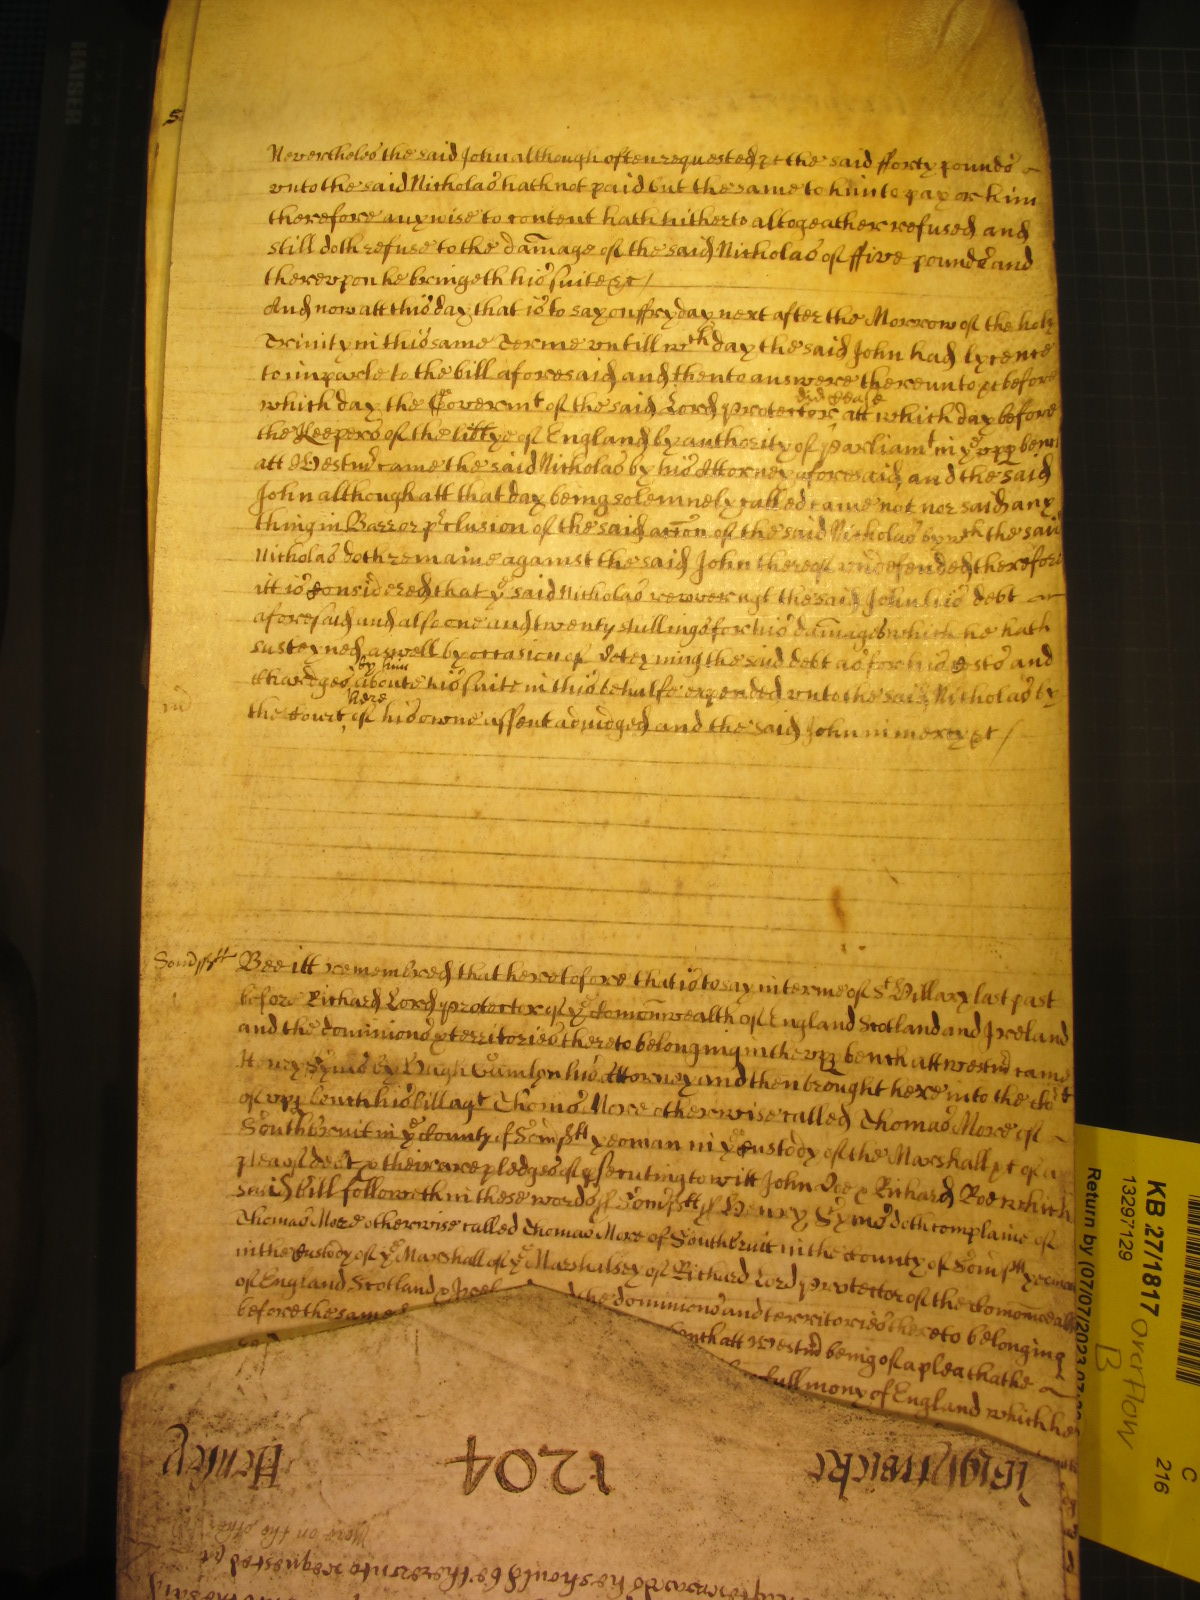 HAISER
5
Nevertheles the said John although often requested &c the said fforty pounds
vnto the said Nicholas hath not paid but the same to him to pay or him
therefore anywise to content hath hitherto altogeather refused and
still doth refuse to the damage of the said Nicholas of ffive pounds and
therevpon he bringeth his suite &c /
And now att this day that is to say on ffryday next after the Morrow of the holy
Trinity in this same Terme vntill wch day the said John had lycence
to imparle to the bill aforesaid and then to answere thereunto &c before
which day the Governmt of the said Lord Protector did cease att which day before
the Keepers of the libtye of England by authority of Parliamt in ye vpp bench
att Westmr came the said Nicholas by his Attorney aforesaid and the said
John although att that day being solemnely called came not nor said any
thing in Barr or pclusion of the said accon of the said Nicholas by wch the said
Nicholas doth remaine against the said John thereof vndefended therefore
itt is considered that ye said Nicholas recover agt the said John his debt
aforesaid and alsoe one and twenty shillings for his damages which he hath
susteyned aswell by occasion of deteyning the said debt as for his costs and
Chardges by him aboute his suite in this behalfe expended vnto the said Nicholas by
the Court here of his owne assent adiudged and the said John in mercy &c /
Somssett
Bee itt remembred that heretofore that is to say in terme of St Hillary last past
before Richard Lord Protector of ye Comonwealth of England Scotland and Ireland
and the dominions & territories thereto belonging in the vpp bench att westmr came
Henry Syms by Hugh Gamlyn his Attorney and then brought here into the Cort
of vpp bench his bill agt Thoms More otherwise called Thomas More of
Southbruit in ye County of Somssett yeoman in ye custody of the Marshall &c of a
plea of debt & their are pledges of psecuting to witt John Doe & Richard Roe which
said bill followeth in these words ss Somssett ss Henry Syms doth complaine of
Thomas More otherwise called Thomas More of Southbruit in the County of Somssett yeoman
in the custody of ye Marshall of ye Marshalsey of Richard Lord Protector of the Comonwealth
of England Scotland & Irel the dominions and territories thereto belonging
before the same bench att Westmr being of a plea that he
full mony of England which he
1204
Henley
More on the other
he should be thereunto requested
Return by (07/07/2023
13297129
KB 27/1817
Overflow
B
C
216